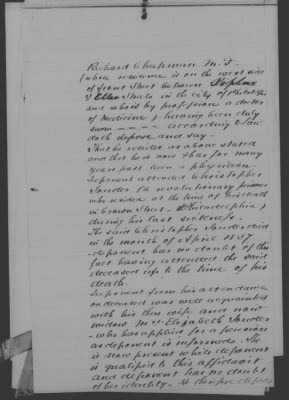 Richard Chapman M.D.
(whose residence is on the west side
of Front Street between Poplar
& Ellen Streets in the city of
and who is by profession a doctor
of Medicine) having been duly
sworn according to law
doth depose and say -
That he resides as above stated
and that he is now & has for many
years past been a physician.
Deponent attended Christopher
Snider (a revolutionary pensioner
who resided at the time of his death
in Crown Street, Philadelphia)
during his last sickness.
The said Christopher Snider died
in the month of April
deponent has no doubt of this
fact having attended the said
deceased up to the time of his
death.
Deponent from his attendance
on deceased was well acquainted
with his then wife and now
widow Mrs Elizabeth Snider
who has applied for a pension
as deponent is informed. She
is now present while deponent
is qualified to this affidavit
and deponent has no doubt
of her identity. He therefore